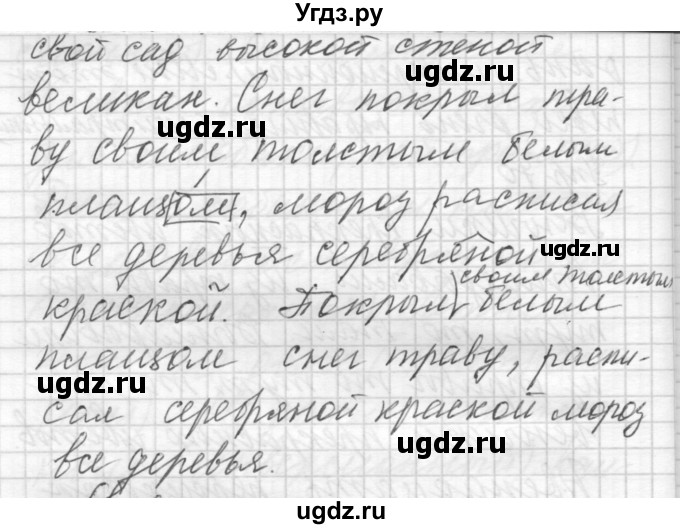 Угдз.ру
свой сад высокой стеной
великан. Снег покрыл тра-
ву своим толстым белым
плащом, мороз расписал
все деревья серебряной
своим толстым
краской. Покрыл белым
плащом снег траву, распи-
сал серебряной краской мороз
все деревья.
ugdz.ru
ugdz.ru
ugdz.ru
ugdz.ru
ugdz.ru
ugdz.ru
ugdz.ru
ugdz.ru